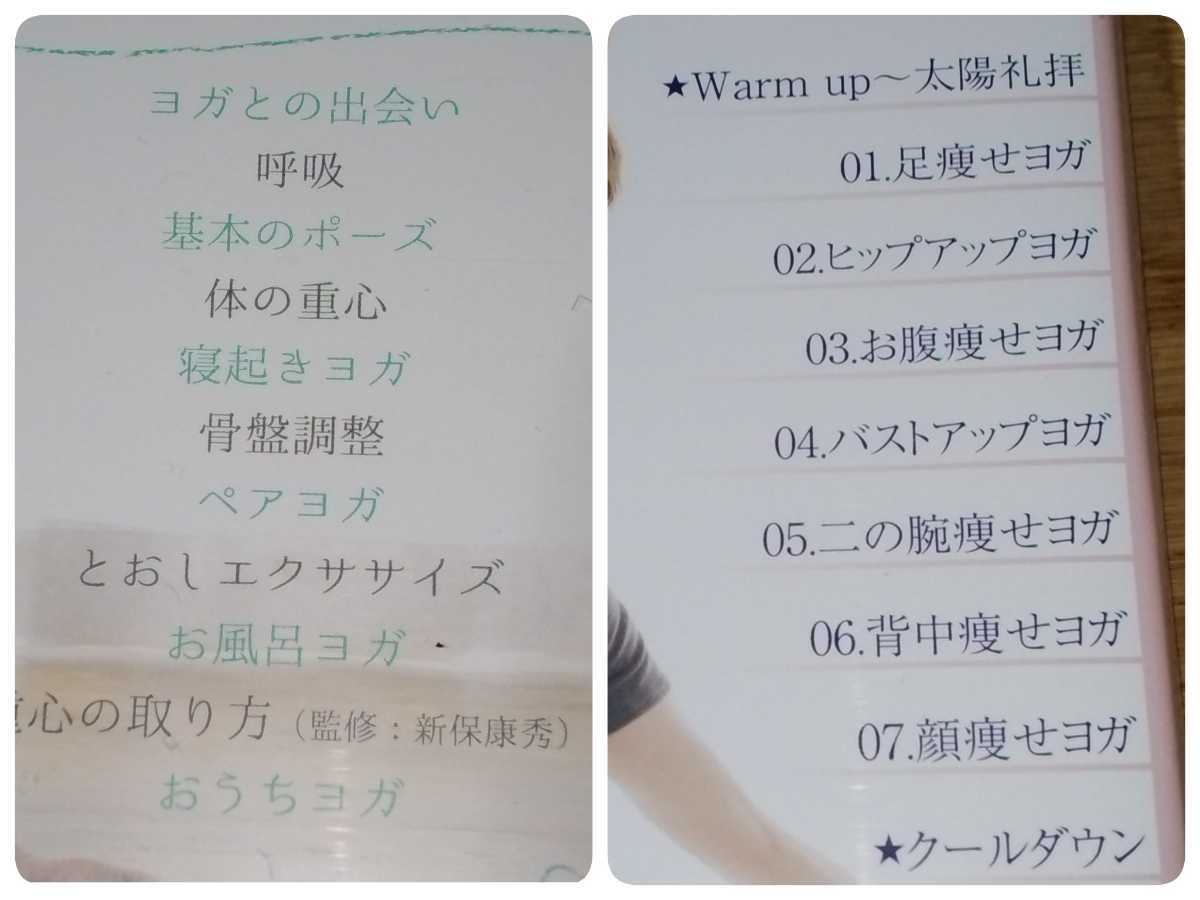 ヨガとの出会い
呼吸
基本のポーズ
体の重心
寝起きヨガ
骨盤調整
ペアヨガ
とおしエクササイズ
お風呂ヨガ
心の取り方（監修：新保康秀）
おうちヨガ
★Warm up～太陽礼拝
01.足痩せヨガ
02.ヒップアップヨガ
03.お腹痩せヨガ
04.バストアップヨガ
05.二の腕痩せヨガ
06.背中痩せヨガ
07.顔痩せヨガ
★クールダウン